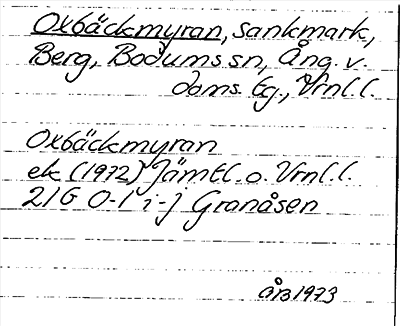 Oxbäckmyran, sankmark,
Berg, Bodums sn, Ång. v.
doms. lg., Vrnl. l.
Oxbäckmyran
ek (1972) Jämtl. o. Vrnl. l.
21G 0-1 i-j Granåsen
1973